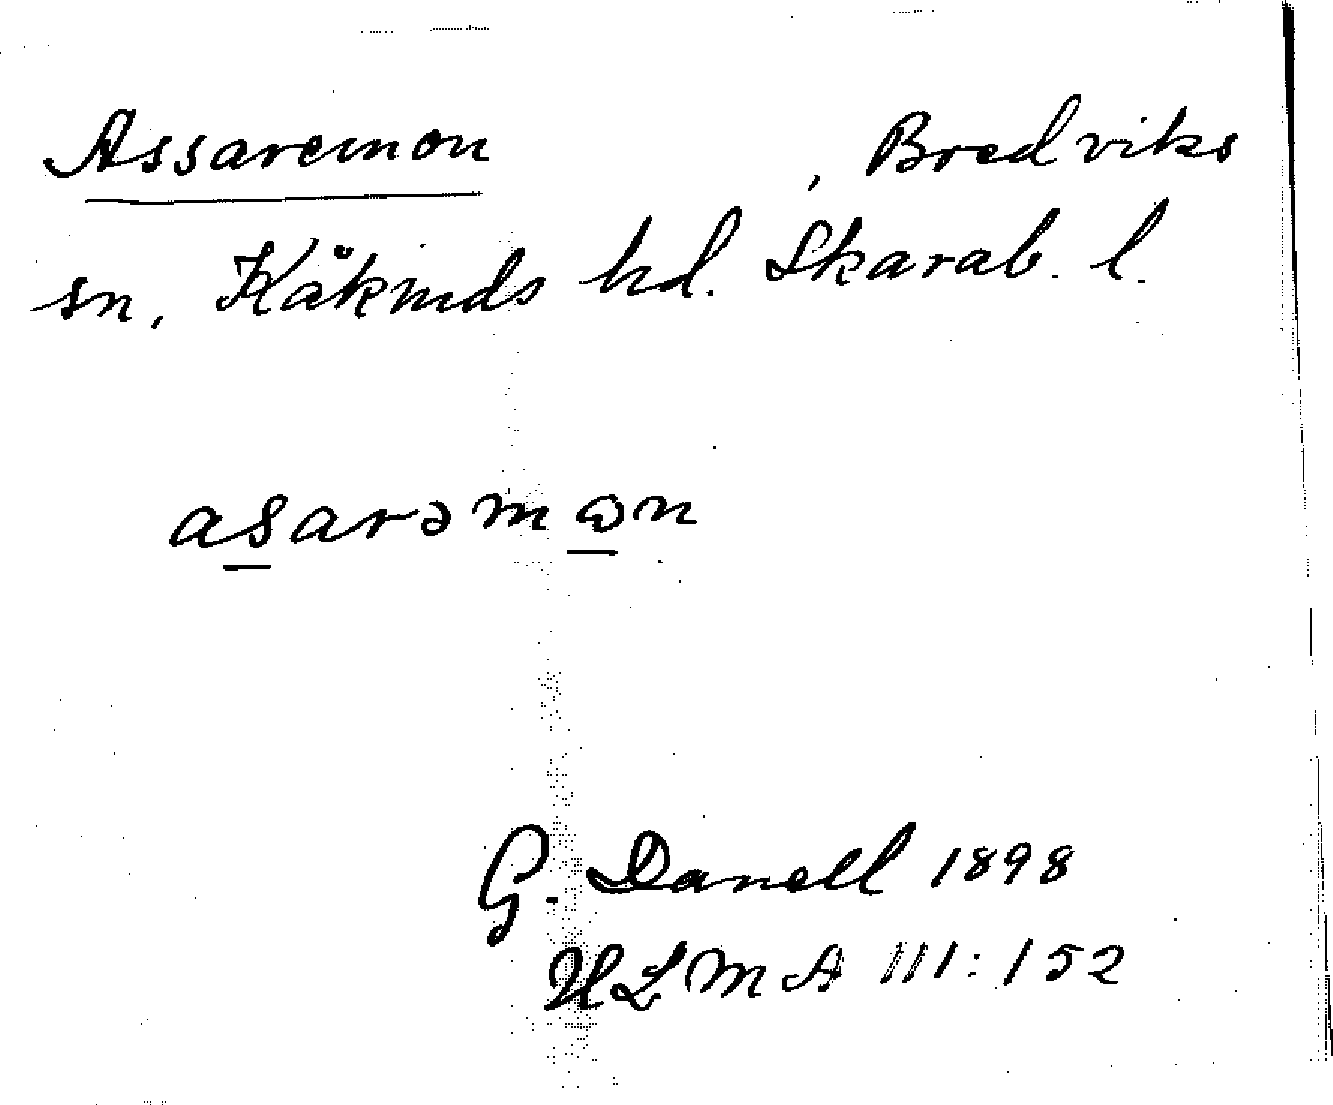 Assaremon , Bredviks
sn, Kåkinds hd. Skarab. l.
asarəmɷn
G. Danell 1898
ULMA III:152